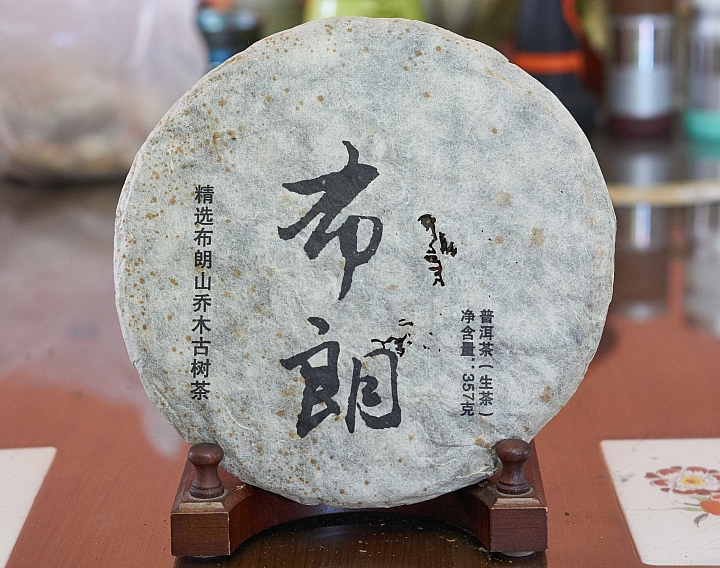 布朗
普洱茶(生茶)
净含量:357克
精选布朗山乔木古树茶